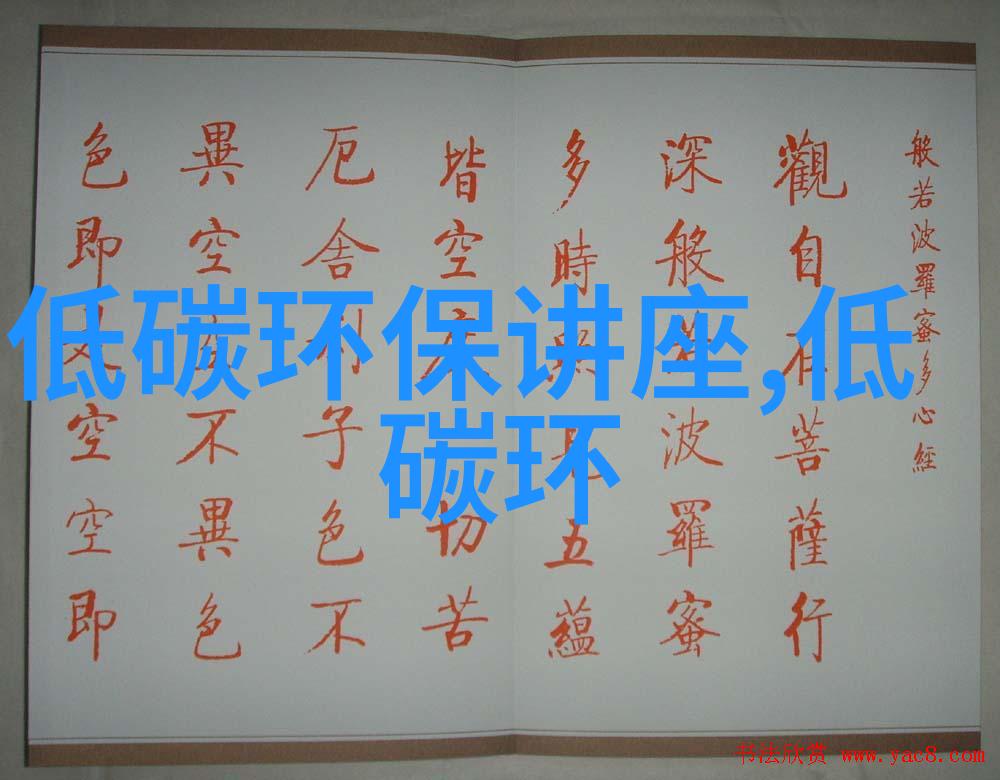 般若波羅蜜多心經
觀自在菩薩行
深般若波羅蜜
多時照見五蘊
皆空度切苦
厄舍利子色不
異空不異色
色即空空即
低碳环保讲座,低
碳环
书法欣赏 www.yac8.com